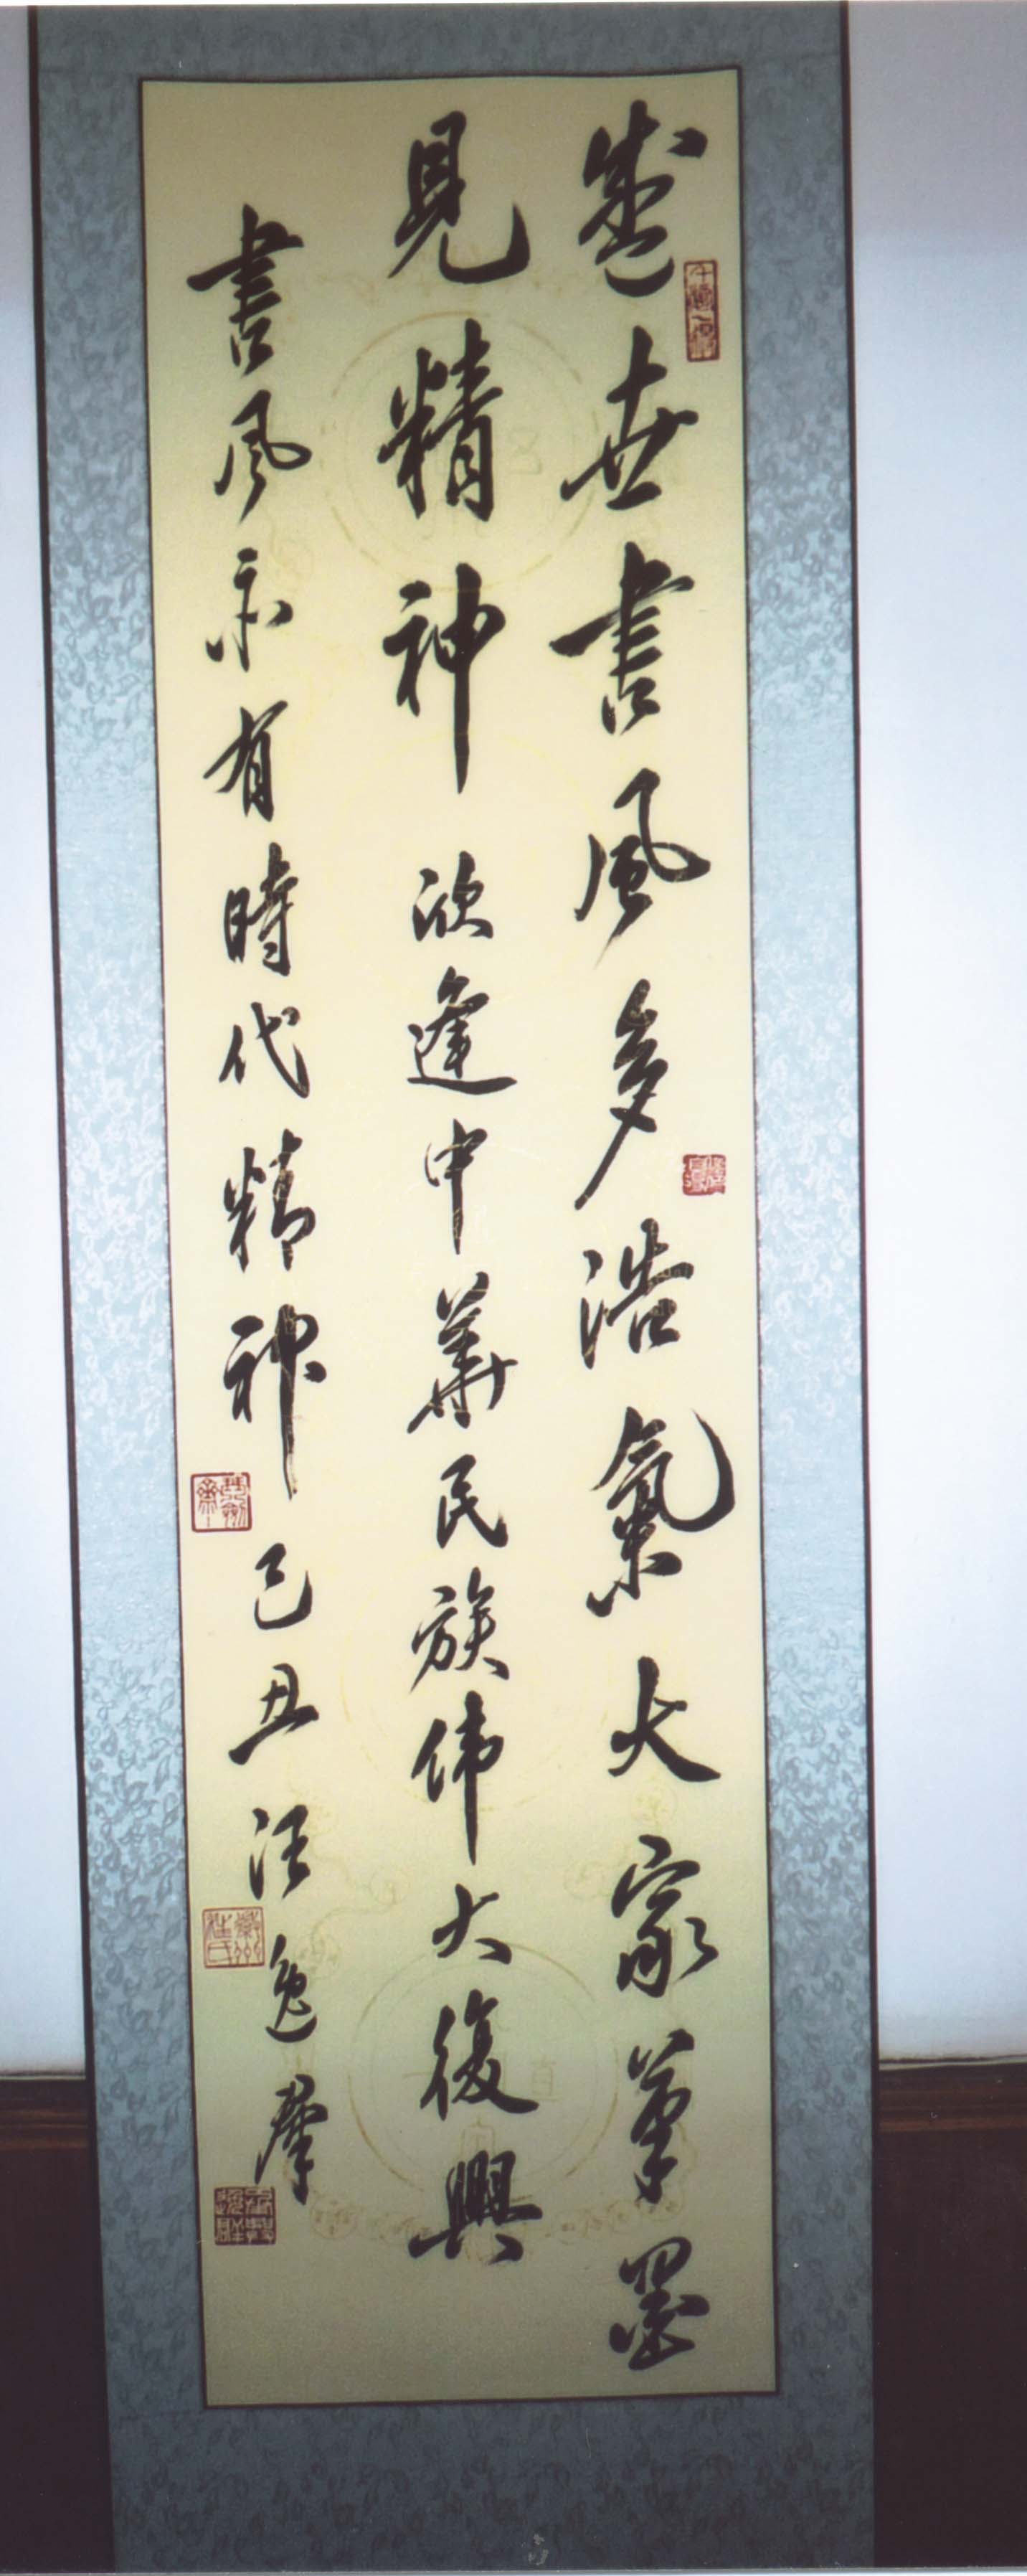 盛世書風多浩氣大家筆墨
見精神欣逢中華民族伟大復興
書風亦有時代精神己丑汪逸羣